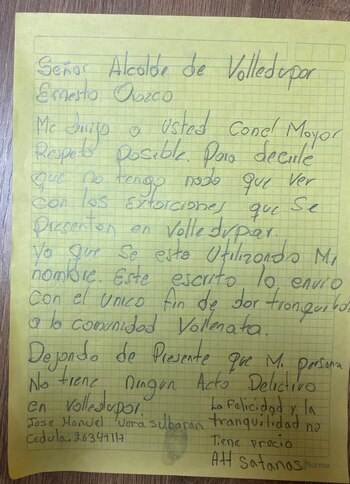 Señor Alcalde de Volledupar
Ernesto Orozco
Me dirijo a Usted Con el Mayor
Respeto Posible. Para decirle
que no tengo nada que ver
con las Extorciones que Se
Presentan en Volledupar.
Ya que Se esta Utilizando Mi
nombre. Este escrito lo envio
Con el Unico fin de dar tranquilidad
a la comunidad Vallenata.
Dejando de Presente que Mi persona
No tiene Ningun Acto Delictivo
en Volledupar.
Jose Manuel Vera Sulbaran
Cedula. 20349117
La Felicidad y la
tranquilidad no
Tiene precio
Att Satanas